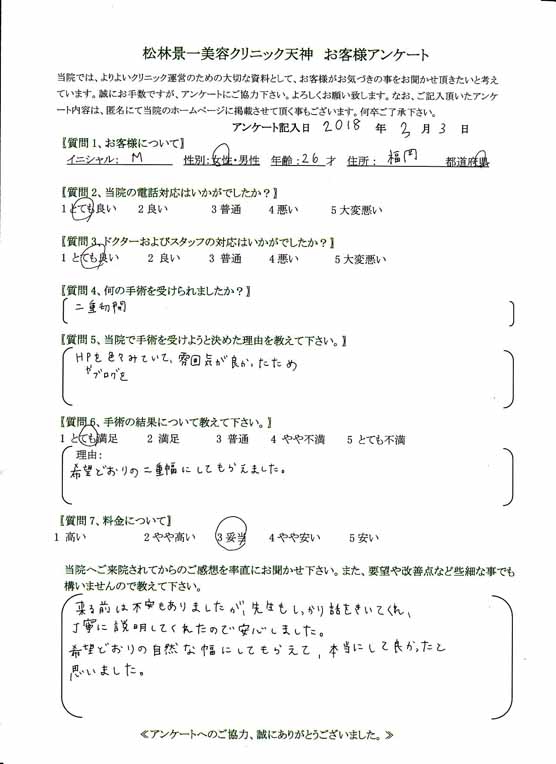 松林景一美容クリニック天神　お客様アンケート
当院では、よりよいクリニック運営のための大切な資料として、お客様がお気づきの事をお聞かせ頂きたいと考え
ています。誠にお手数ですが、アンケートにご協力下さい。よろしくお願い致します。なお、ご記入頂いたアンケ
ート内容は、匿名にて当院のホームページに掲載させて頂く事もございます。何卒ご了承下さい。
アンケート記入日 2018 年 3 月 3 日
【質問1、お客様について】
イニシャル： M 性別：女性・男性 年齢：26 才 住所： 福岡 都道府県
【質問2、当院の電話対応はいかがでしたか？】
1 とても良い 2 良い 3 普通 4 悪い 5 大変悪い
【質問3、ドクターおよびスタッフの対応はいかがでしたか？】
1 とても良い 2 良い 3 普通 4 悪い 5 大変悪い
【質問4、何の手術を受けられましたか？】
二重切開
【質問5、当院で手術を受けようと決めた理由を教えて下さい。】
HPを色々みていて、雰囲気が良かったため
やブログを
【質問6、手術の結果について教えて下さい。】
1 とても満足 2 満足 3 普通 4 やや不満 5 とても不満
理由：
希望どおりの二重幅にしてもらえました。
【質問7、料金について】
1 高い 2 やや高い 3 妥当 4 やや安い 5 安い
当院へご来院されてからのご感想を率直にお聞かせ下さい。また、要望や改善点など些細な事でも
構いませんので教えて下さい。
来る前は不安もありましたが、先生もしっかり話をきいてくれ、
丁寧に説明してくれたので安心しました。
希望どおりの自然な幅にしてもらえて、本当にして良かったと
思いました。
≪アンケートへのご協力、誠にありがとうございました。≫